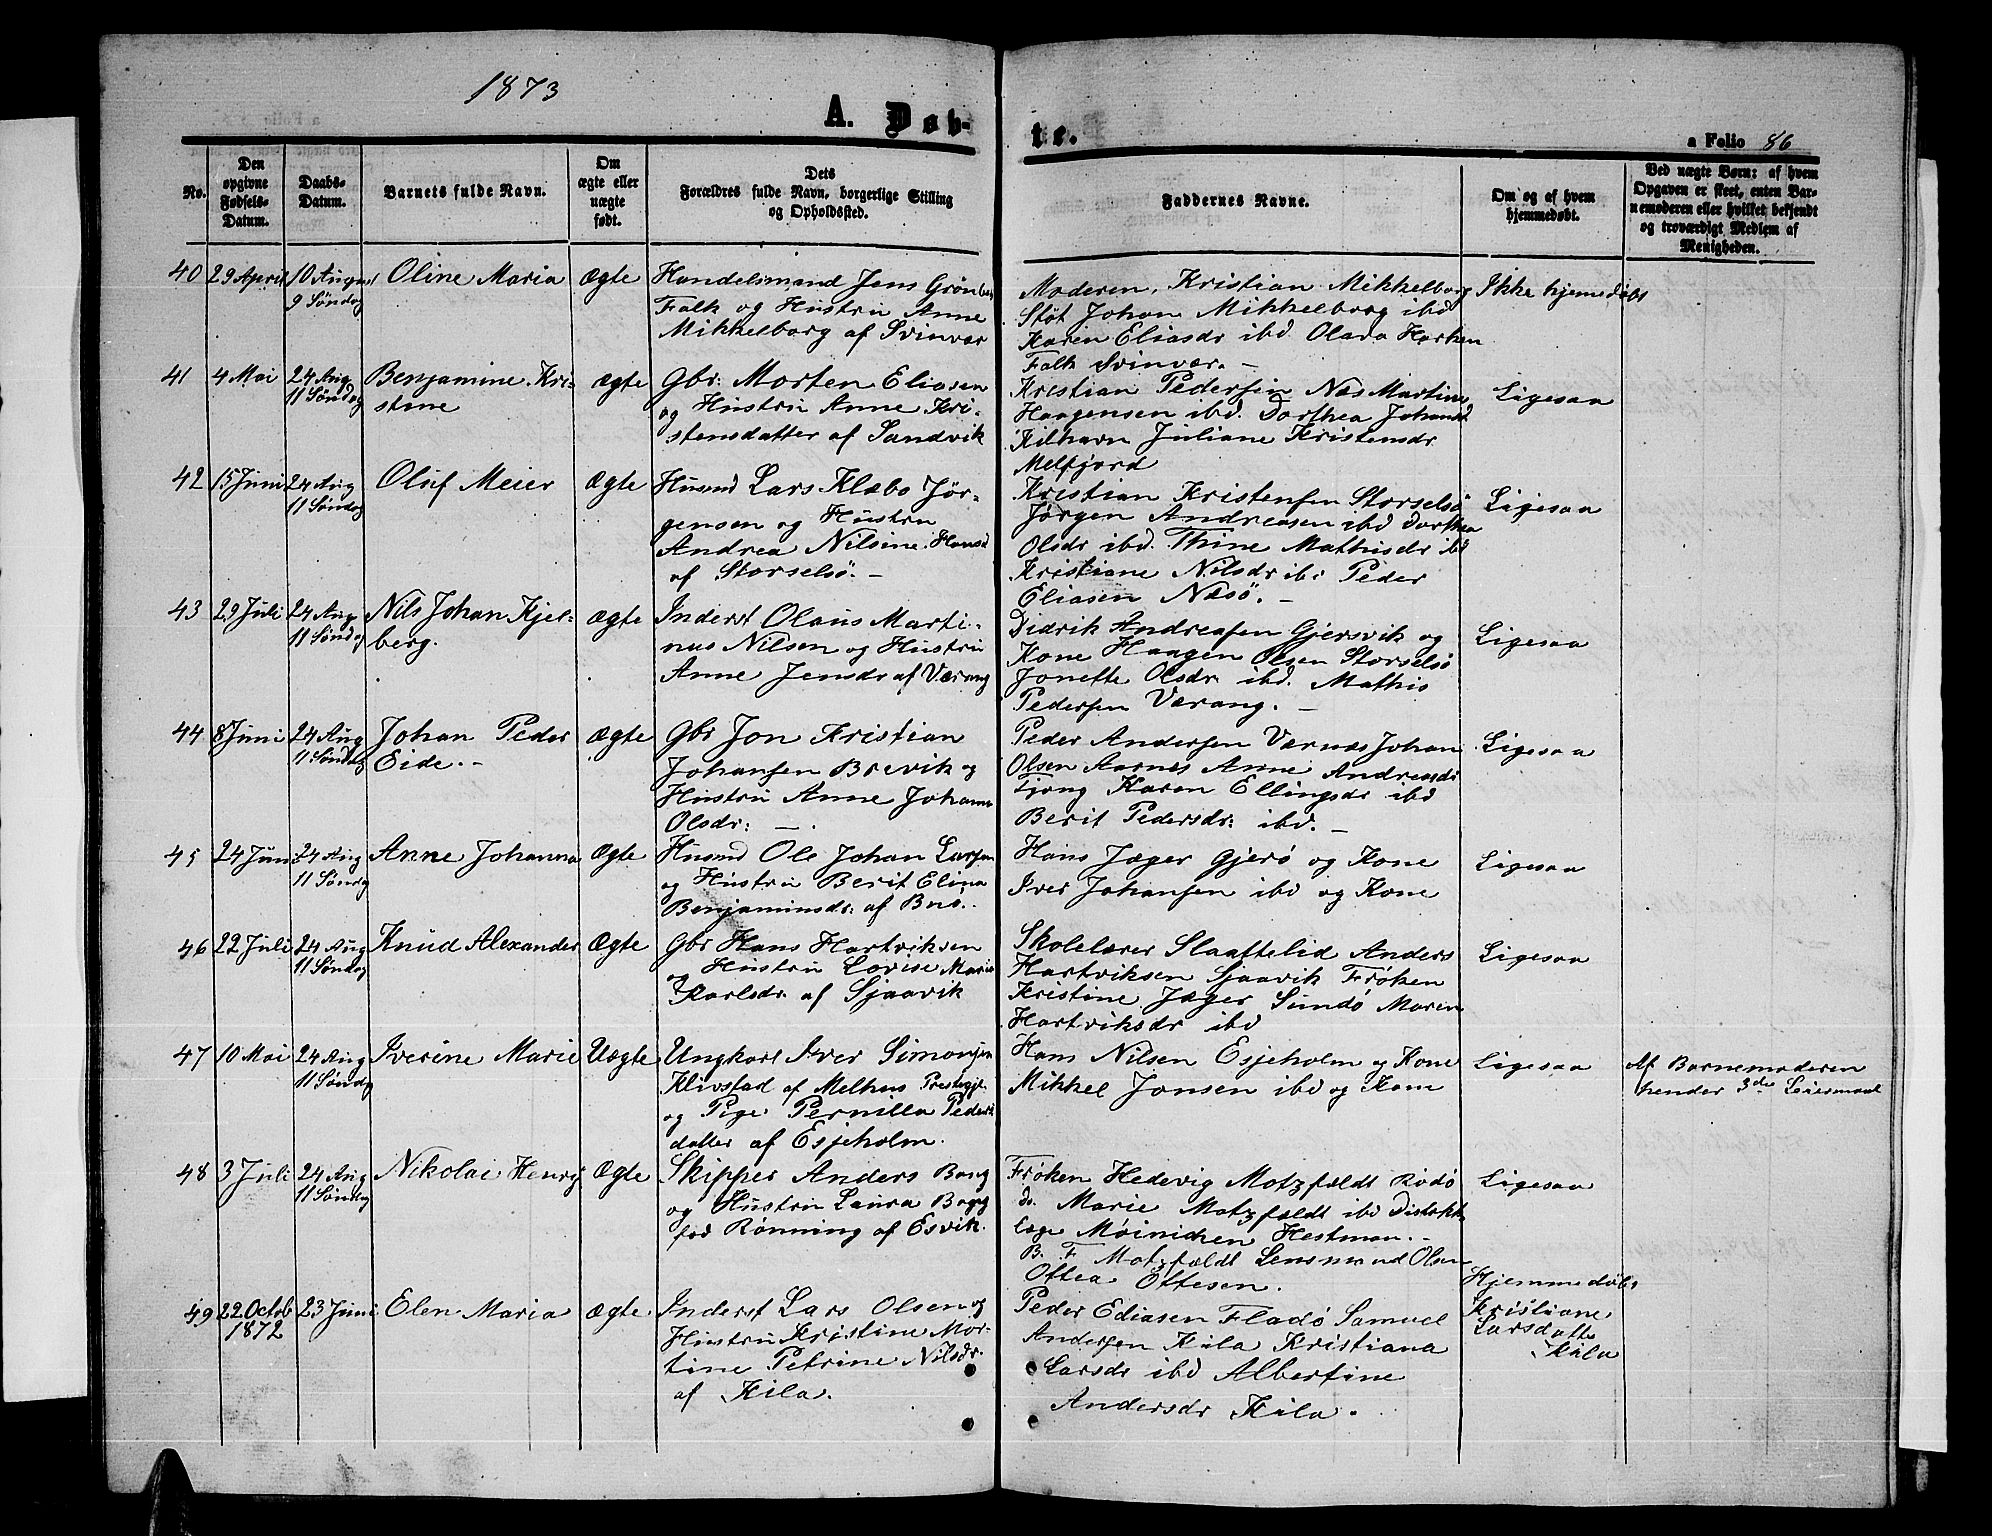 1873
A. Døb-
te.
a Folio 86
No.
Den
opgivne
Fødsels-
Datum.
Daabs-
Datum.
Barnets fulde Navn.
Om
ægte eller
uægte
født.
Dets
Forældres fulde Navn, borgerlige Stilling
og Opholdssted.
Faddernes Navne.
Om og af hvem
hjemmedøbt.
Ved uægte Børn: af hvem
Opgaven er skeet, enten Bar-
nemoderen eller hvilket bekjendt
og troværdigt Medlem af
Menigheden.
40 29 April 10 August
9 Søndag
Oline Maria
Ægte
Handelsmand Jens Grønbec
Falk og Hustru Anne
Mikkelborg af Svinvær
Moderen, Kristian Mikkelborg
Støt Johan Mikkelborg ibd
Karen Eliasdr ibd Olava
Falk Svinvær. -
Ikke hjemedøbt
41 4 Mai 24 Aug
11 Søndag
Benjamine Kri-
stine
Ægte
Gbr: Morten Eliasen
og Hustru Anne Kri-
stensdatter af Sandvik
Kristian Pedersen Næs Martin
Haagensen ibd. Dorthea Johansd
Kilhavn Juliane Kristensdr
Melfjord
Ligesaa
42 15 Juni 24 Aug
11 Søndag
Oluf Meier
Ægte
Husmd Lars Klæbo Jør-
gensen og Hustru
Andrea Nilsine Hansd
af Storselsö. -
Kristian Kristensen Storselsö
Jørgen Andreasen ibd Dorthea
Olsdr ibd. Thine Mathisdr ibd
Kristiane Nilsdr ibd Peder
Eliasen Næsö. -
Ligesaa
43 29 Juli 24 Aug
11 Søndag
Nils Johan Kjel-
berg.
Ægte
Inderst Olaus Marti-
nus Nilsen og Hustru
Anne Jensdr af Værang
Didrik Andreasen Gjersvik og
Kone Haagen Olsen Storselsö
Jonette Olsdr ibd. Mathis
Pedersen Værang. -
Ligesaa
44 8 Juni 24 Aug
11 Søndag
Johan Peder
Eide. -
Ægte
Gbr Jon Kristian
Johansen Brevik og
Hustru Anne Johanna
Olsdr: -
Peder Andersen Værnæs Johan
Olsen Aarnes Anne Andreasdr
Tjong Karen Ellingsdr ibd
Berit Pedersdr: ibd. -
Ligesaa
45 24 Juni 24 Aug
11 Søndag
Anne Johanna
Ægte
Husmd Ole Johan Larsen
og Hustru Berit Elina
Benjaminsdr: af
Hans Jæger Gjerö og Kone
Iver Johansen ibd og Kone
Ligesaa
46 22 Juli 24 Aug
11 Søndag
Knud Alexander
Ægte
Gbr Hans Hartviksen
og Hustru Lovise Marie
Karlsdr af Sjaavik
Skolelærer Slaattelid Anders
Hartviksen Sjaavik Frøken
Kristine Jæger Sundö Maren
Hartviksdr ibd
Ligesaa
47 10 Mai 24 Aug
11 Søndag
Iverine Marie
Uægte
Ungkarl Iver Simonsen
Klivstad af Melhus Prestegjl
og Pige Pernilla Peders
datter af Esjeholm.
Hans Nilsen Esjeholm og Kone
Mikkel Jonsen ibd og Kone
Ligesaa
Af Barnemoderen
hendes 3die Leiermaal
48 3 Juli 24 Aug
11 Søndag
Nikolai Henrÿ
Ægte
Skipper Anders Borg
og Hustru Laura Borg
fød Rønning af Esvik.
Frøken Hedevig Motzfældt Rødö
do. Marie Motzfældt ibd Distrikts
læge Møinichen Hestman. -
B. F. Motzfældt Lensmand Olsen
Ottea Ottesen.
Ligesaa
49 22 Octob
1872
23 Juni
Elen Maria
Ægte
Inderst Lars Olsen og
Hustru Kristine Mar-
tine Petrine Nilsdr.
af Kila.
Peder Ediasen Fladö Samuel
Andersen Kila Kristiana
Larsdr ibd Albertine
Andersdr Kila.
Hjemmedøbt
Kristiane
Larsdatte
Kila